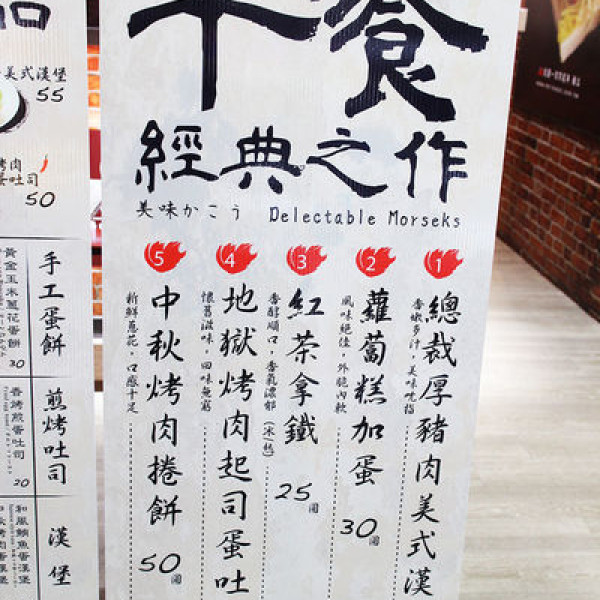 餐
經典之作
美味かこう Delectable Morseks
1
總裁厚豬肉美式漢
香嫩多汁，美味吮指
2
蘿蔔糕加蛋
風味絕佳，外脆內軟
30
3
紅茶拿鐵
香醇順口，香氣濃郁（冰/熱）
25
4
地獄烤肉起司蛋吐
懷舊滋味，回味無窮
5
中秋烤肉捲餅
新鮮蔥花，口感十足
50
美式漢堡
55
烤肉
蛋吐司
50
手工蛋餅
黃金玉米蔥花蛋餅
30
煎烤吐司
香烤煎蛋吐司
20
漢堡
和風鮪魚蛋漢堡